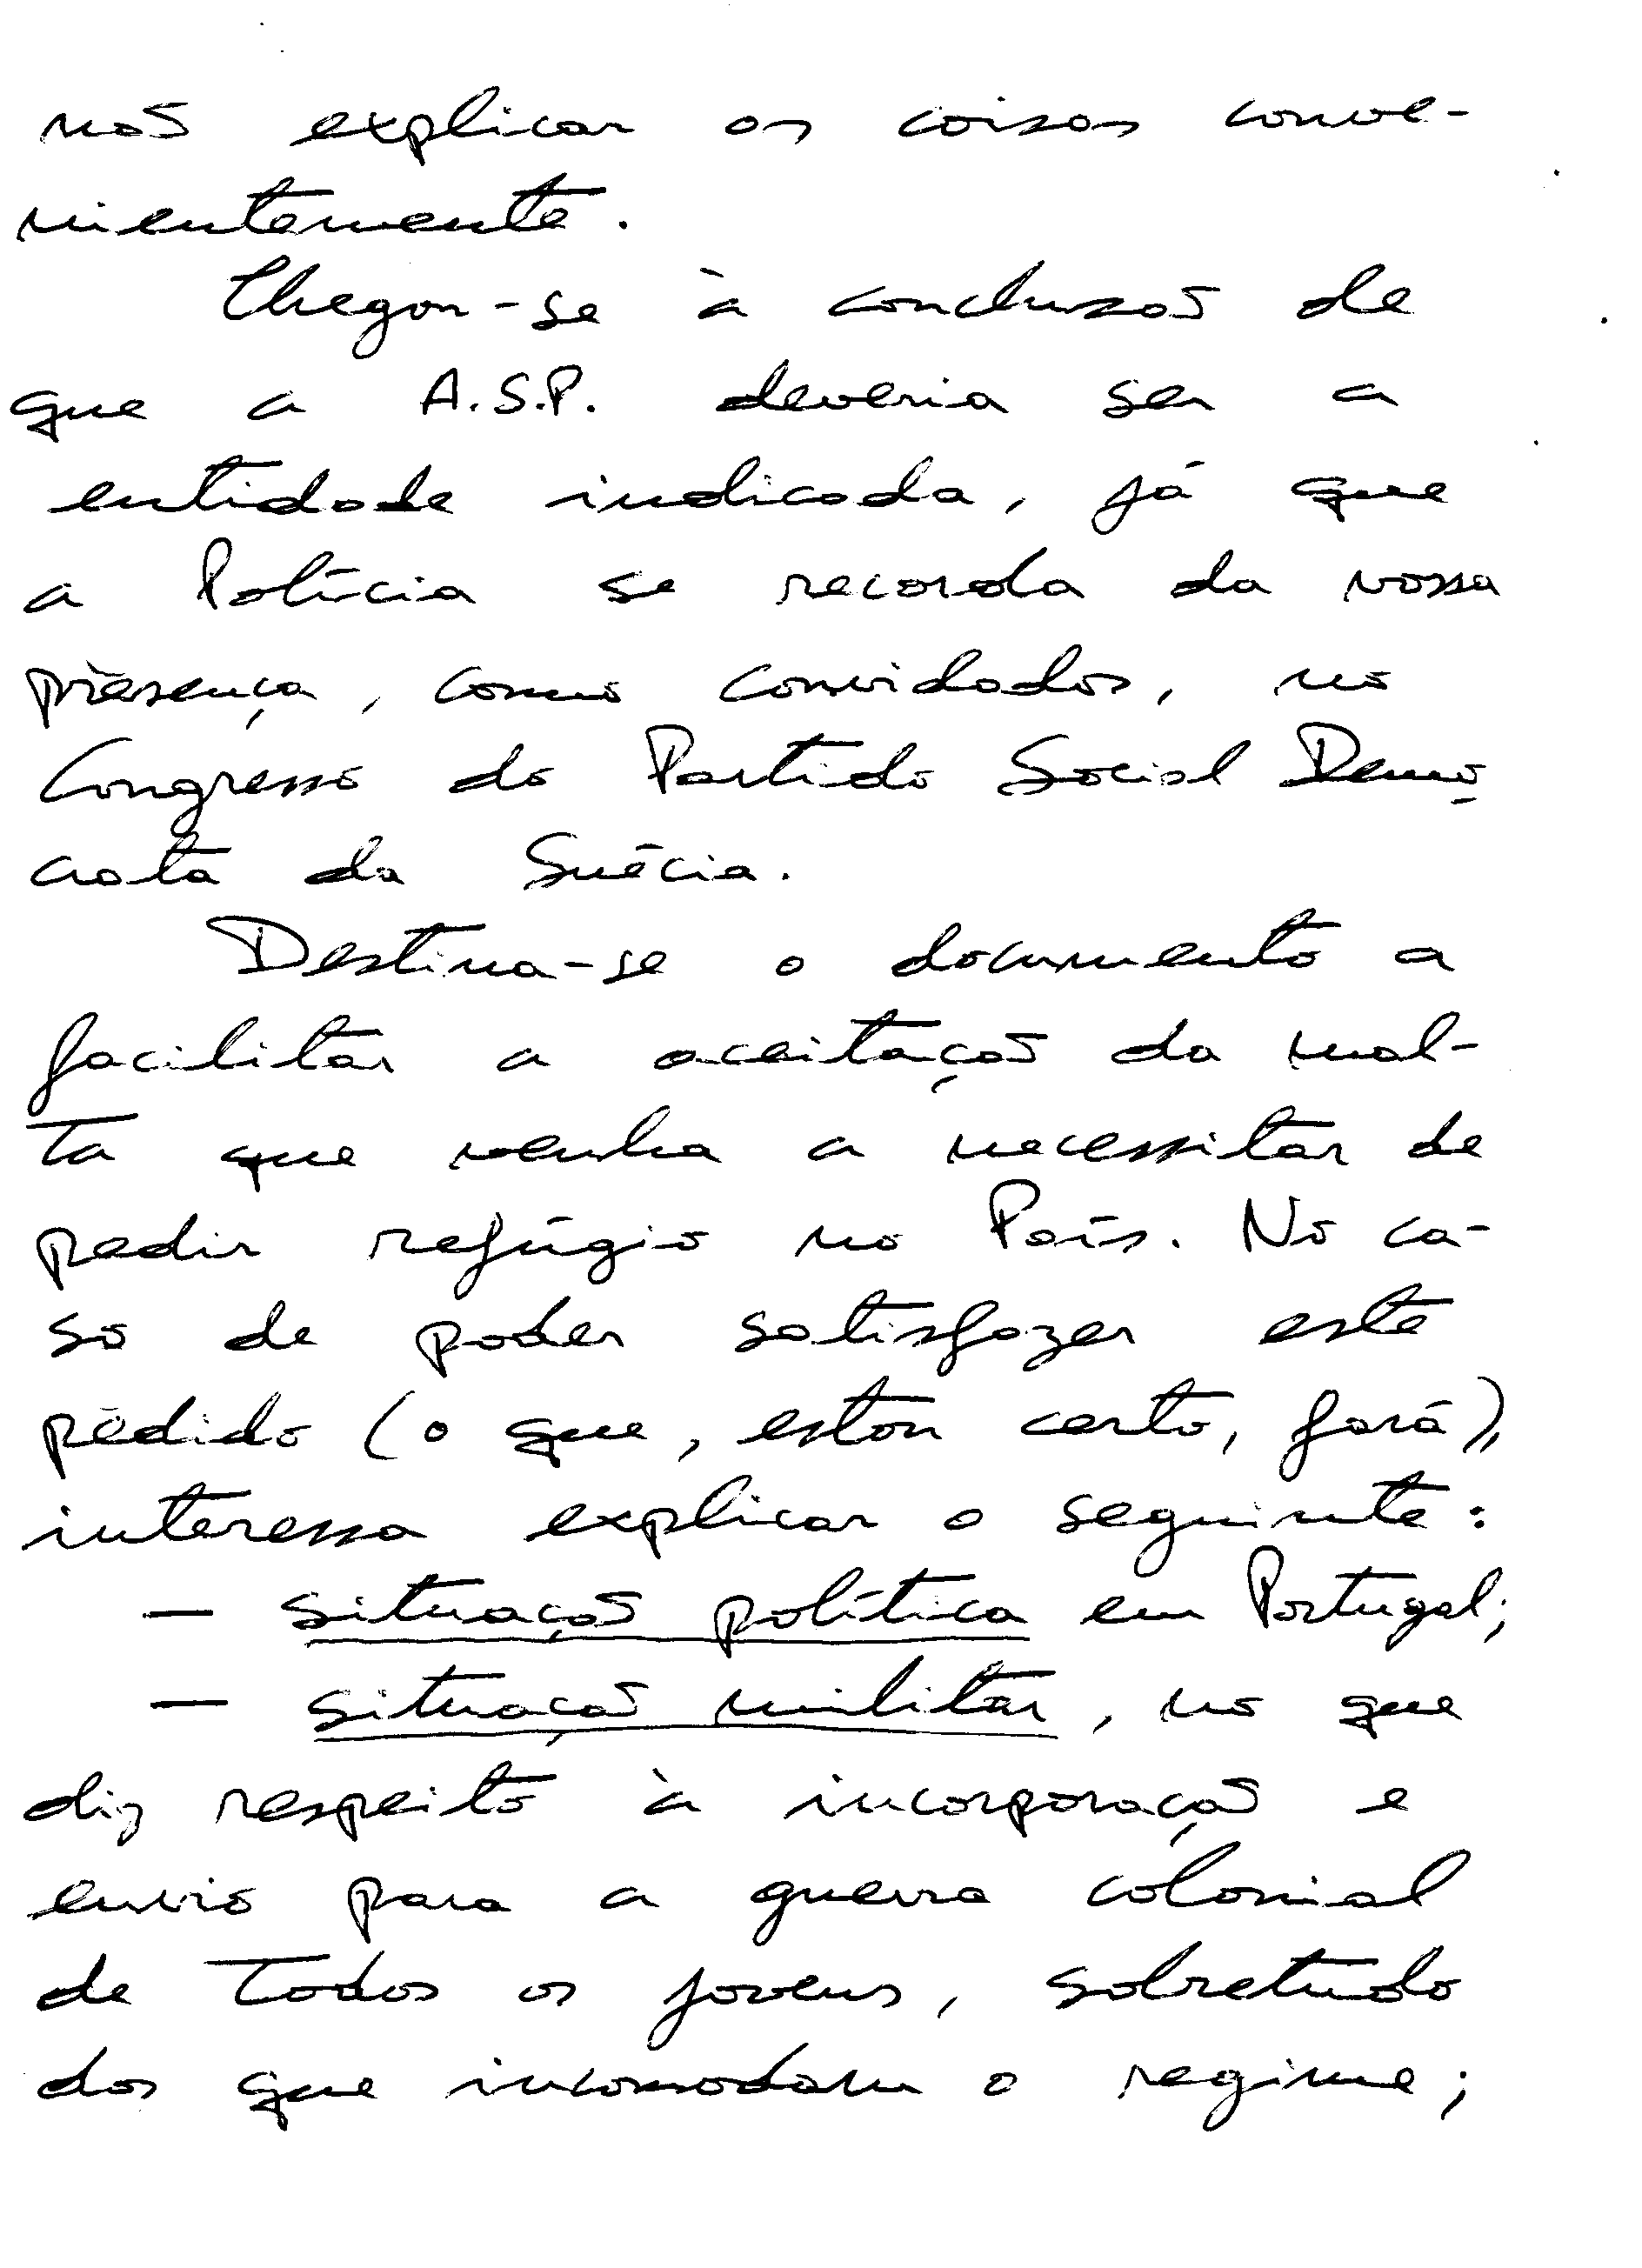 não explicar as coisas conve-
nientemente.
Chegou-se à conclusão de
que a A.S.P. deveria ser a
entidade indicada, já que
a Polícia se recorda da vossa
presença, como convidados, no
Congresso do Partido Social Demo
crata da Suécia.
Destina-se o documento a
facilitar a aceitação da mal-
ta que venha a necessitar de
pedir refúgio no País. No ca-
so de poder satisfazer este
pedido (o que, estou certo, fará),
interessa explicar o seguinte:
- situação política em Portugal;
- situação militar, no que
diz respeito à incorporação e
envio para a guerra colonial
de todos os jovens, sobretudo
dos que incomodam o regime;